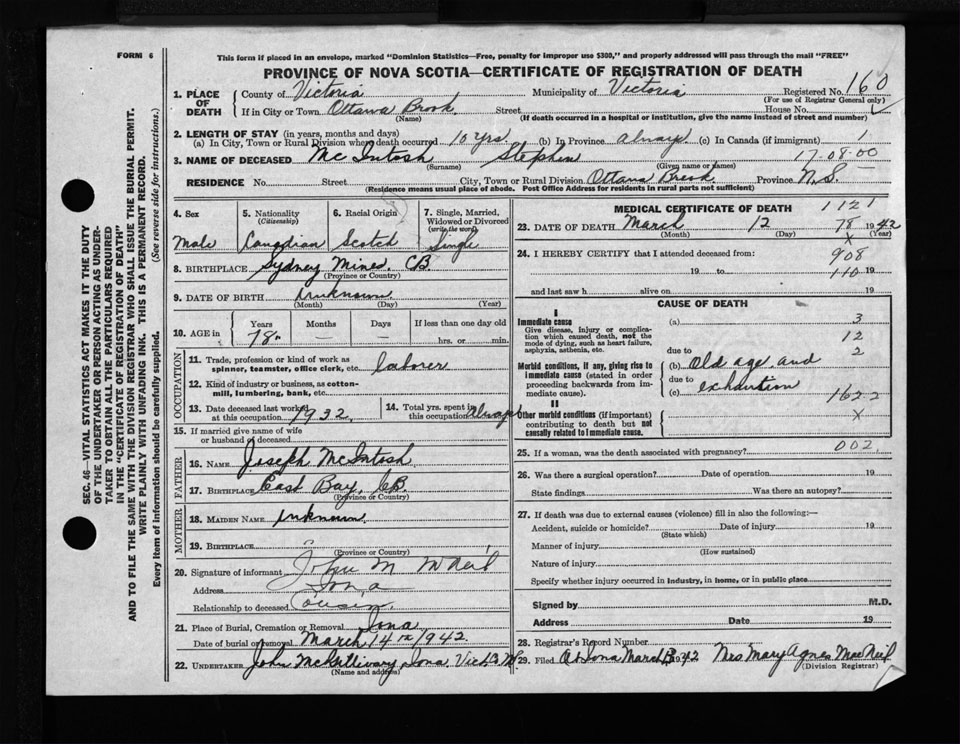 FORM 6
This form if placed in an envelope, marked "Dominion Statistics—Free, penalty for improper use $300," and properly addressed will pass through the mail "FREE"
PROVINCE OF NOVA SCOTIA—CERTIFICATE OF REGISTRATION OF DEATH
SEC. 46—VITAL STATISTICS ACT MAKES IT THE DUTY
OF THE UNDERTAKER OR PERSON ACTING AS UNDER-
TAKER TO OBTAIN ALL THE PARTICULARS REQUIRED
IN THE "CERTIFICATE OF REGISTRATION OF DEATH"
AND TO FILE THE SAME WITH THE DIVISION REGISTRAR WHO SHALL ISSUE THE BURIAL PERMIT.
WRITE PLAINLY WITH UNFADING INK. THIS IS A PERMANENT RECORD.
Every item of information should be carefully supplied. (See reverse side for instructions.)
1. PLACE OF DEATH County of Victoria Municipality of Victoria Registered No. 160
(For use of Registrar General only)
If in City or Town Ottawa Brook Street House No.
(Name) (If death occurred in a hospital or institution, give the name instead of street and number)
2. LENGTH OF STAY (in years, months and days)
(a) In City, Town or Rural Division where death occurred 10 yrs. (b) In Province always (c) In Canada (if immigrant) 1
3. NAME OF DECEASED McIntosh Stephen 17-08-00
(Surname) (Given name or names)
RESIDENCE No. Street City, Town or Rural Division Ottawa Brook Province N.S.
(Residence means usual place of abode. Post Office Address for residents in rural parts not sufficient)
4. Sex 5. Nationality 6. Racial Origin 7. Single, Married,
(Citizenship) Widowed or Divorced
(write the word)
Male Canadian Scotch Single
8. BIRTHPLACE Sydney Mines, CB
(Province or Country)
9. DATE OF BIRTH Unknown
(Month) (Day) (Year)
10. AGE in Years Months Days If less than one day old
78 — — hrs. or min.
OCCUPATION
11. Trade, profession or kind of work as
spinner, teamster, office clerk, etc. laborer
12. Kind of industry or business, as cotton-
mill, lumbering, bank, etc.
13. Date deceased last worked
at this occupation 1932
14. Total yrs. spent in
this occupation always
15. If married give name of wife
or husband of deceased
FATHER
16. NAME Joseph McIntosh
17. BIRTHPLACE East Bay, CB
(Province or Country)
MOTHER
18. MAIDEN NAME Unknown
19. BIRTHPLACE
(Province or Country)
20. Signature of informant John M McNeil
Address Iona
Relationship to deceased Cousin
21. Place of Burial, Cremation or Removal Iona
Date of burial or removal March 14th 1942
22. UNDERTAKER John McGillivary, Iona, Vict
(Name and address)
MEDICAL CERTIFICATE OF DEATH 1121
23. DATE OF DEATH March 12 78 1942
(Month) (Day) X (Year)
24. I HEREBY CERTIFY that I attended deceased from: 908
19 to 110 19
and last saw h alive on 19
CAUSE OF DEATH
I
Immediate cause (a) 3
Give disease, injury or complica-
tion which caused death, not the
mode of dying, such as heart failure,
asphyxia, asthenia, etc.
12
due to 2
Morbid conditions, if any, giving rise to
immediate cause (stated in order
proceeding backwards from im-
mediate cause).
(b) Old age and
due to
(c) exhaustion
1622
II
Other morbid conditions (if important)
contributing to death but not
causally related to immediate cause.
X
25. If a woman, was the death associated with pregnancy? 002
26. Was there a surgical operation? Date of operation 19
State findings Was there an autopsy?
27. If death was due to external causes (violence) fill in also the following:—
Accident, suicide or homicide? Date of injury 19
(State which)
Manner of injury
(How sustained)
Nature of injury
Specify whether injury occurred in industry, in home, or in public place
Signed by M.D.
Address Date 19
28. Registrar's Record Number
29. Filed At Iona March 42 Mrs Mary Agnes MacNeil
(Division Registrar)